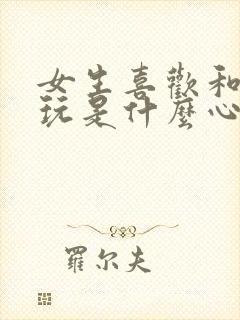 女生喜歡和
玩是什麼心
羅尔夫